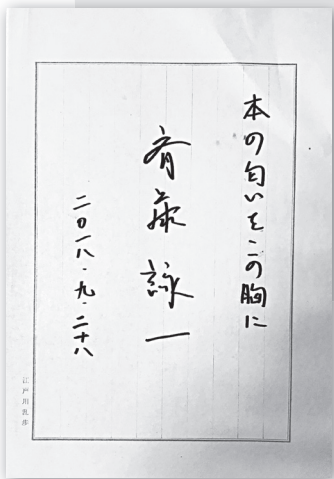 本の匂いをこの胸に
斉藤詠一
二〇一八・九・二十八
江戸川乱歩